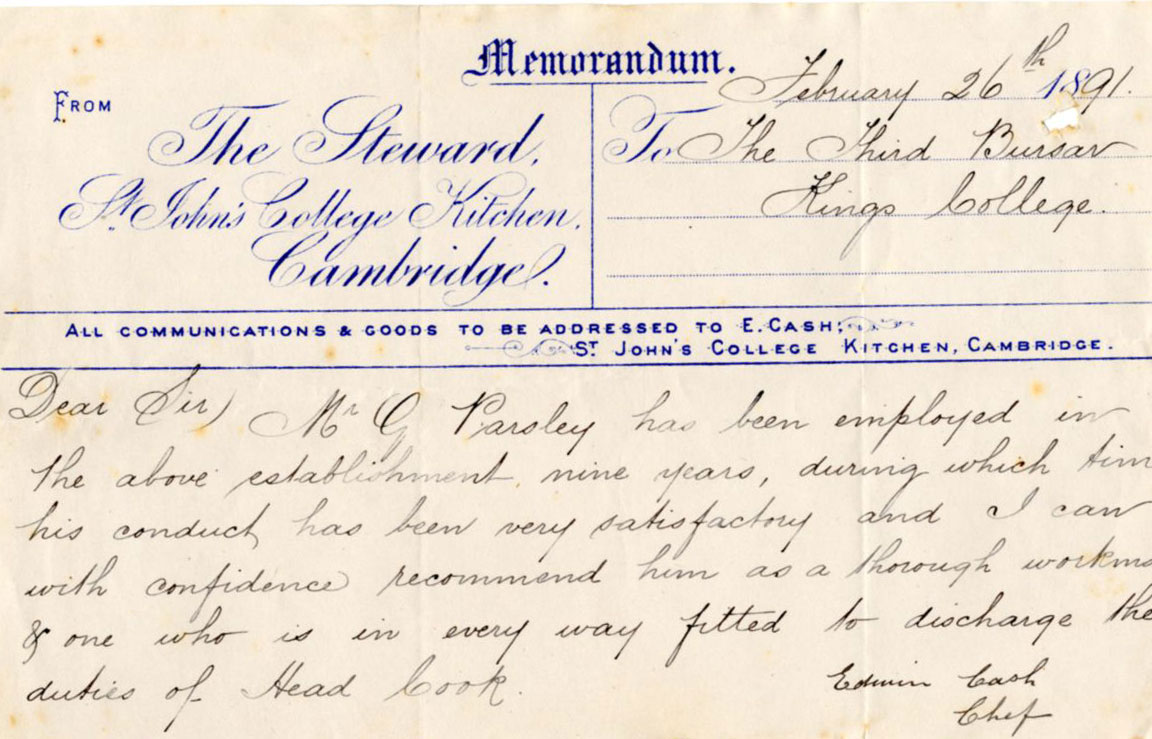 Memorandum.
February 26th 1891.
FROM
The Steward,
St. John's College Kitchen,
Cambridge.
To The Third Bursar
Kings College.
ALL COMMUNICATIONS & GOODS TO BE ADDRESSED TO E. CASH,
ST JOHN'S COLLEGE KITCHEN, CAMBRIDGE.
Dear Sir) Mr G Parsley has been employed in
the above establishment nine years, during which tim
his conduct has been very satisfactory and I can
with confidence recommend him as a thorough workma
& one who is in every way fitted to discharge the
duties of Head Cook.
Edwin Cash
Chef